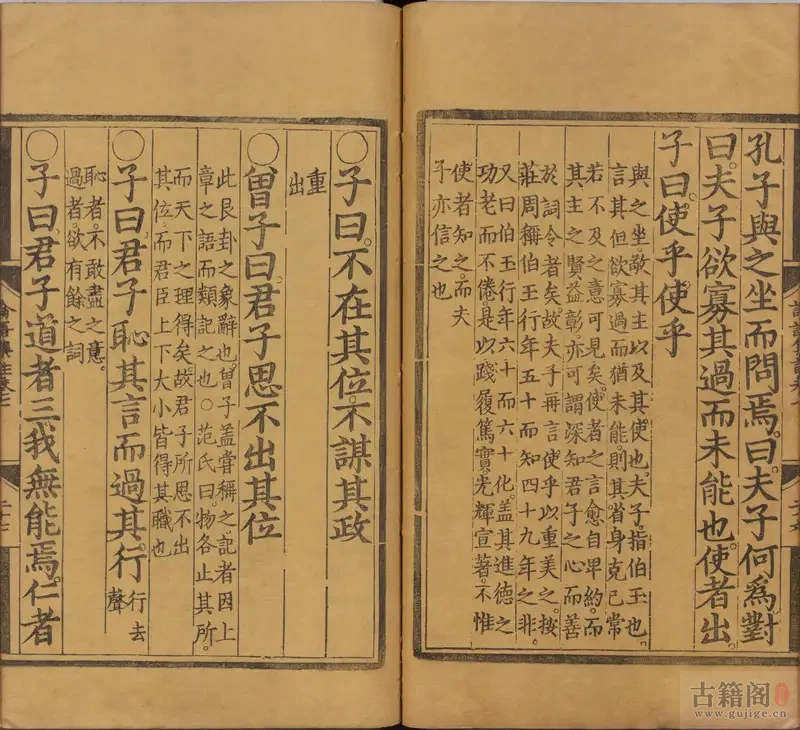 孔子與之坐而問焉。曰。夫子何為。對
曰。夫子欲寡其過而未能也。使者出。
子曰。使乎使乎
與之坐。敬其主以及其使也。夫子。指伯玉也。
言其但欲寡過而猶未能。則其省身克己。常
若不及之意可見矣。使者之言愈自卑約。而
其主之賢益彰。亦可謂深知君子之心。而善
於詞令者矣。故夫子再言使乎以重美之。按
莊周稱伯玉行年五十而知四十九年之非。
又曰伯玉行年六十而六十化。蓋其進德之
功。老而不倦。是以踐履篤實。光輝宣著。不惟
使者知之。而夫
子亦信之也
○子曰。不在其位。不謀其政
重
出
○曾子曰。君子思不出其位
此艮卦之象辭也。曾子蓋嘗稱之。記者因上
章之語而類記之也。○范氏曰。物各止其所。
而天下之理得矣。故君子所思不出
其位。而君臣上下大小。皆得其職也
○子曰。君子恥其言而過其行
行去
聲
恥者。不敢盡之意。
過者。欲有餘之詞
○子曰。君子道者三。我無能焉。仁者
古籍阁
www.gujige.cn